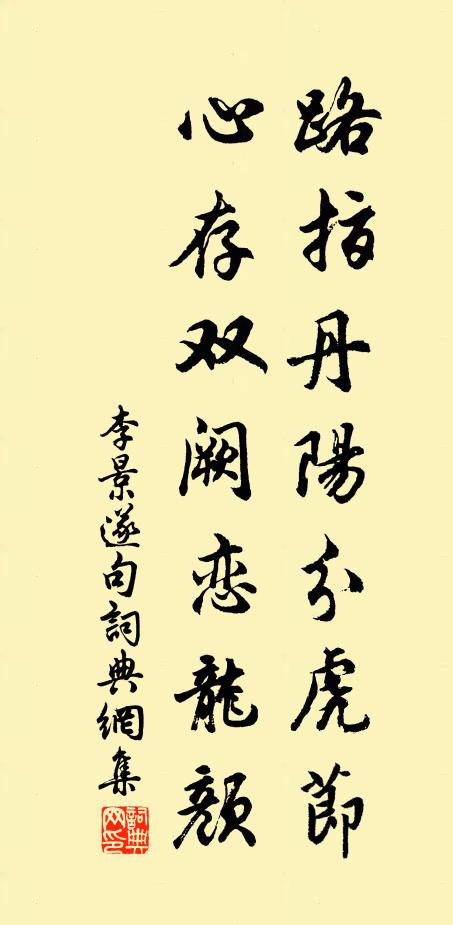 路指丹陽分虎節
心存双阙恋龍顏
李景遂句詞典網集
詞典网印